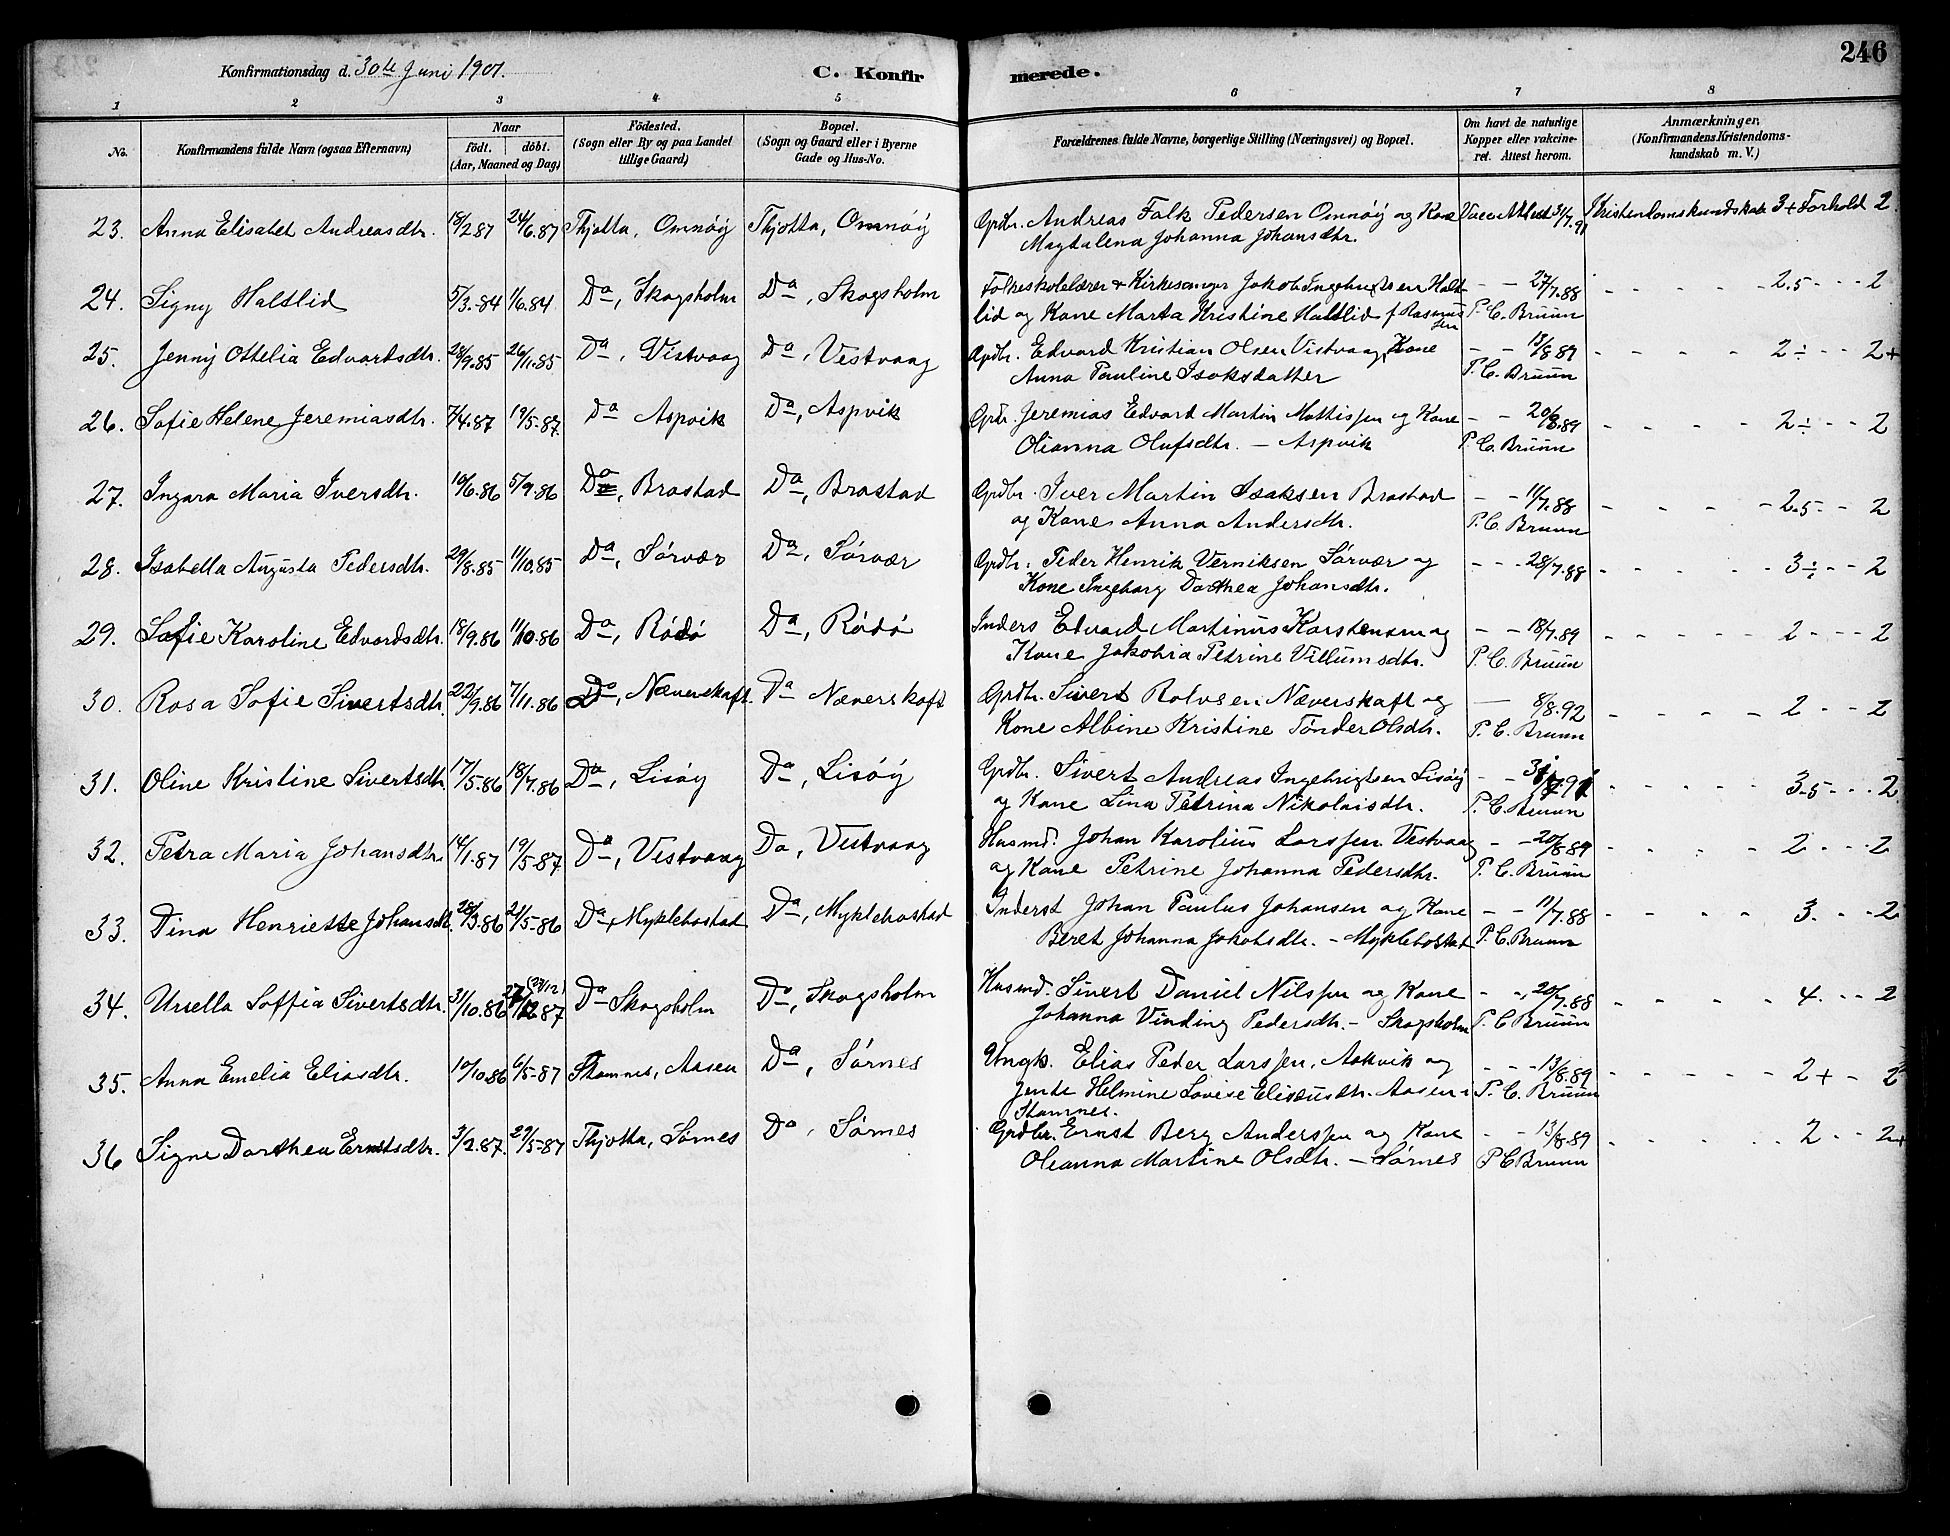 246
Konfirmationsdag d. 30te Juni 1901.
C. Konfirmerede.
1 2 3 4 5 6 7 8
No. Konfirmandens fulde Navn (ogsaa Efternavn) Naar født. døbt. (Aar, Maaned og Dag) Fødested. (Sogn eller By og paa Landet tillige Gaard) Bopæl. (Sogn og Gaard eller i Byerne Gade og Hus-No. Forældrenes fulde Navne, borgerlige Stilling (Næringsvei) og Bopæl. Om havt de naturlige Kopper eller vakcineret. Attest herom. Anmærkninger. (Konfirmandens Kristendomskundskab m. V.)
23. Anna Elisabet Andreasdtr. 18/2 87 24/6.87 Thjøtta, Omnøiy Thjøtta, Omnøiy Grdbr. Andreas Falk Pedersen Omnøiy og Kone Vacc Attest 31/7.91 Kristendomskundskab 3+ Forhold 2
Magdalena Johanna Johansdtr.
24. Signy Haltlid 5/3.-84 1/6.84 Da, Skogsholm Da, Skogsholm Folkeskolelærer & Kirkesanger Jakob Ingebrigtsen Halt- - - 27/7.88 - - - - - 2.5 - - - 2
lid og Kone Marta Kristine Haltlid f. Rasmussen P. C. Bruun
25. Jenny Othelia Edvartsdtr. 28/9.85 26/11.85 Da, Vistvaag Da, Vestvaag Grdbr. Edvard Kristian Olsen Vistvaag, Kone - - 13/8 89 - - - - - 2 ÷ - - 2+
Anna Pauline Isaksdatter P. C. Bruun
26. Sofie Helene Jeremiasdtr. 7/4.87 19/5-87. Da Aspvik Da, Aspvik Grdbr. Jeremias Edvard Martin Mattissen og Kone - - 20/8.89 - - - - - 2 ÷ - - 2
Olianna Olufsdtr. - Aspvik P. C. Bruun
27. Ingara Maria Iversdtr. 10/6.86 5/9.86 Da, Brastad Da, Brastad Grdbr. Iver Martin Isaksen Brastad - - 11/7.88 - - - - - 2.5 - - 2
og Kone Anna Andersdtr. P. C. Bruun
28. Isabella Augusta Pedersdtr. 29/8.85 11/10.85 Da, Sørvær Da, Sørvær Grdbr. Peder Henrik Verniksen Sørvær og - - - 28/7.88 - - - - - 3 ÷ - - 2
Kone Ingeborg Dorthea Johansdtr.
29. Sofie Karoline Edvardsdtr. 18/9.86 11/10.86 Da, Rødø Da, Rødø Inders Edvard Martinus Karstensen og - - 18/7.89 - - - - - 2 - - - 2
Kone Jakobia Petrine Villumsdtr. P. C. Bruun
30. Rosa Sofie Sivertsdtr. 22/9.86 7/11.86 Da, Næverskaft. Da Næverskaft Grdbr. Sivert Rolvsen Næverskaft og - 8/8.92 - - - - - 2 - - - 2
Kone Albine Kristine Tønder Olsdtr. P. C. Bruun
31. Oline Kristine Sivertsdtr. 17/5.86 18/7.86 Da, Lisøy Da, Lisøy Grdbr. Sivert Andreas Ingebrigtsen Lisøy - - 31/7.91 - - - - - 3.5 - - - 2
og Kone Lina Petrina Nikolaisdtr. P. C. Bruun
32. Petra Maria Johansdtr. 14/1.87 19/5-87 Da, Vestvaag Da, Vestvaag Husmd. Johan Karolius Larssen Vestvaag - - 20/8.89 - - - - 2 - - - 2
og Kone Petrine Johanna Pedersdtr. P. C. Bruun
33. Dina Henriette Johansdt. 28/3.86 24/5-86 Da, Myklebostad Da, Myklebostad Inderst Johan Paulus Johansen og Kone - - 11/7.88 - - - - 3. - - 2
Beret Johanna Jakobsdtr. - Myklebostad P. C. Bruun
34. Ursella Soffia Sivertsdtr. 31/10.86 (27/12) 87 Da Skogsholm Da, Skogsholm Husmd. Sivert Daniel Nilssen og Kone - -, 20/7.88 - - - - 4. - - - 2
Johanna Vinding Pedersdtr. - Skogsholm P. C. Bruun
35. Anna Emelia Eliasdtr. 10/10.86 6/5-87 Stamnes, Aasen Da, Sørnes Ungk. Elias Peder Larssen, Aakvik og - - - 13/8.89 - - - - - 2+ - 2
Jente Helmine Lovise Elisæusdtr. Aasen i P. C. Bruun
Stamnes.
36 Signe Dorthea Ernstsdtr. 3/2.87. 29/5-87 Thjøtta, Sørnes Da, Sørnes Grdbr. Ernst Berg Anderssen og Kone - - 13/8.89 - - - - - 2 - - 2+
Oleanna Martine Olsdtr. - Sørnes P C Bruun